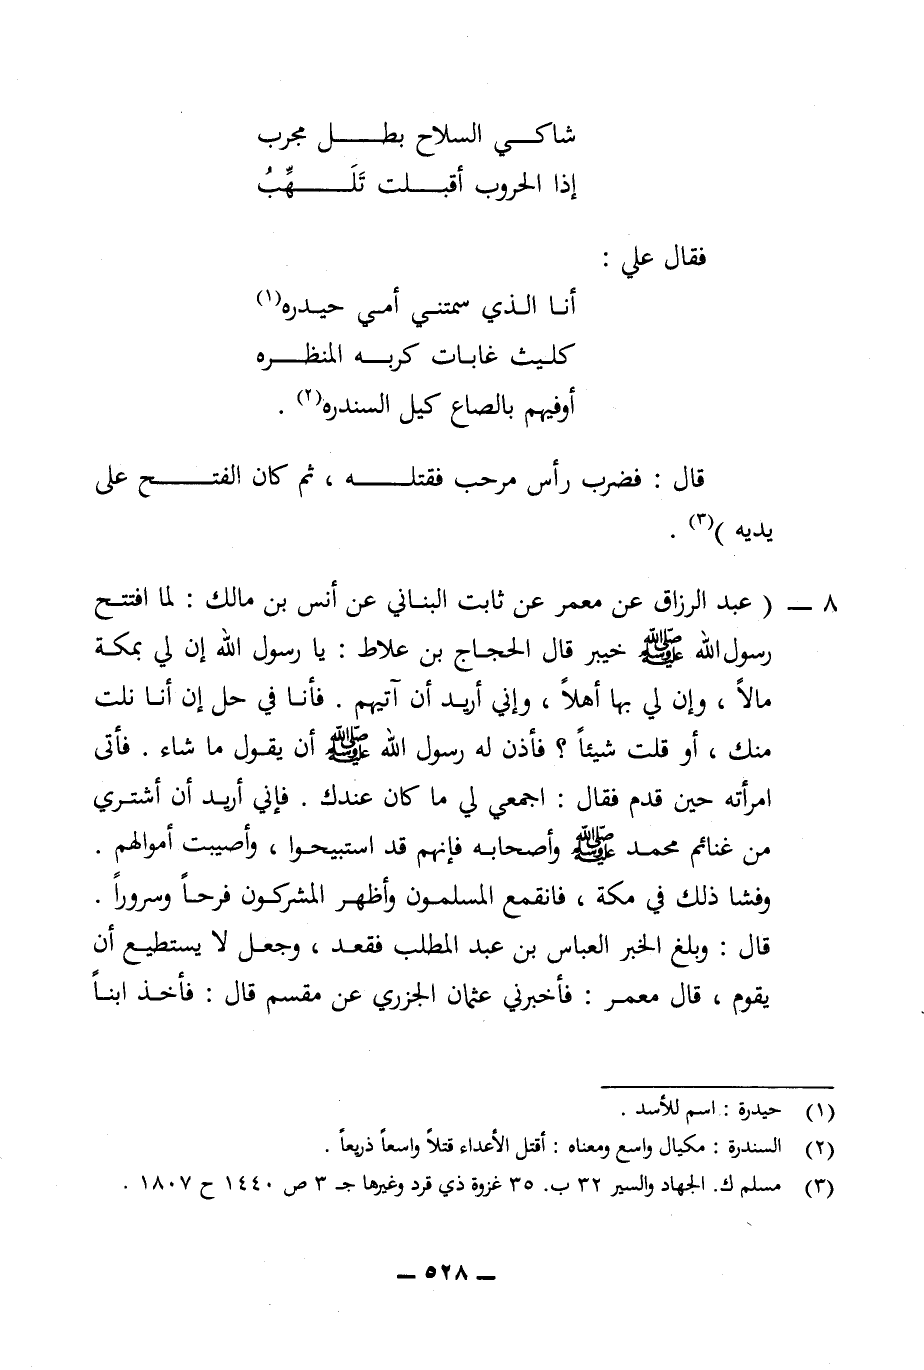 شاكي السلاح بطل مجرب
إذا الحروب أقبلت تَلَهَّبُ
فقال علي :
أنا الذي سمتني أمي حيدره(١)
كليث غابات كريه المنظره
أوفيهم بالصاع كيل السندره(٢) .
قال : فضرب رأس مرحب فقتله ، ثم كان الفتح على
يديه )(٣) .
٨ ــ ( عبد الرزاق عن معمر عن ثابت البناني عن أنس بن مالك : لما افتتح
رسول الله ﷺ خيبر قال الحجاج بن علاط : يا رسول الله إن لي بمكة
مالاً ، وإن لي بها أهلاً ، وإني أريد أن آتيهم . فأنا في حل إن أنا نلت
منك ، أو قلت شيئاً ؟ فأذن له رسول الله ﷺ أن يقول ما شاء . فأتى
امرأته حين قدم فقال : اجمعي لي ما كان عندك . فإني أريد أن أشتري
من غنائم محمد ﷺ وأصحابه فإنهم قد استبيحوا ، وأصيبت أموالهم .
وفشا ذلك في مكة ، فانقمع المسلمون وأظهر المشركون فرحاً وسروراً .
قال : وبلغ الخبر العباس بن عبد المطلب فقعد ، وجعل لا يستطيع أن
يقوم ، قال معمر : فأخبرني عثمان الجزري عن مقسم قال : فأخذ ابناً
(١) حيدرة : اسم للأسد .
(٢) السندرة : مكيال واسع ومعناه : أقتل الأعداء قتلاً واسعاً ذريعاً .
(٣) مسلم ك. الجهاد والسير ٣٢ ب. ٣٥ غزوة ذي قرد وغيرها جـ ٣ ص ١٤٤٠ ح ١٨٠٧ .
ــ ٥٢٨ ــ